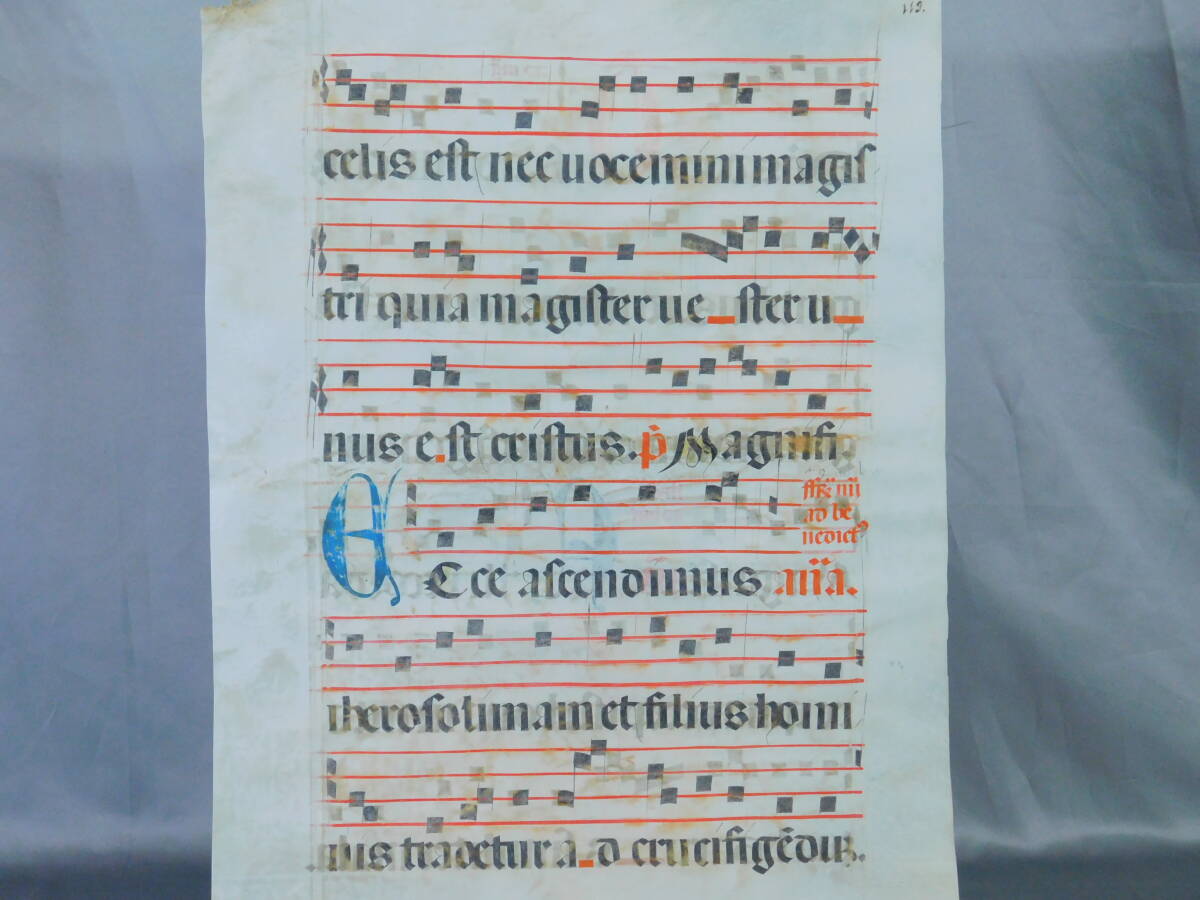 113.
celis est nec uocemini magis
tri quia magister ue ster u
nus e st cristus. p̃ Magnifi
ECce ascendimus an̄a.
iherosolimam et filius homi
nis tradetur a d crucifigēdus.